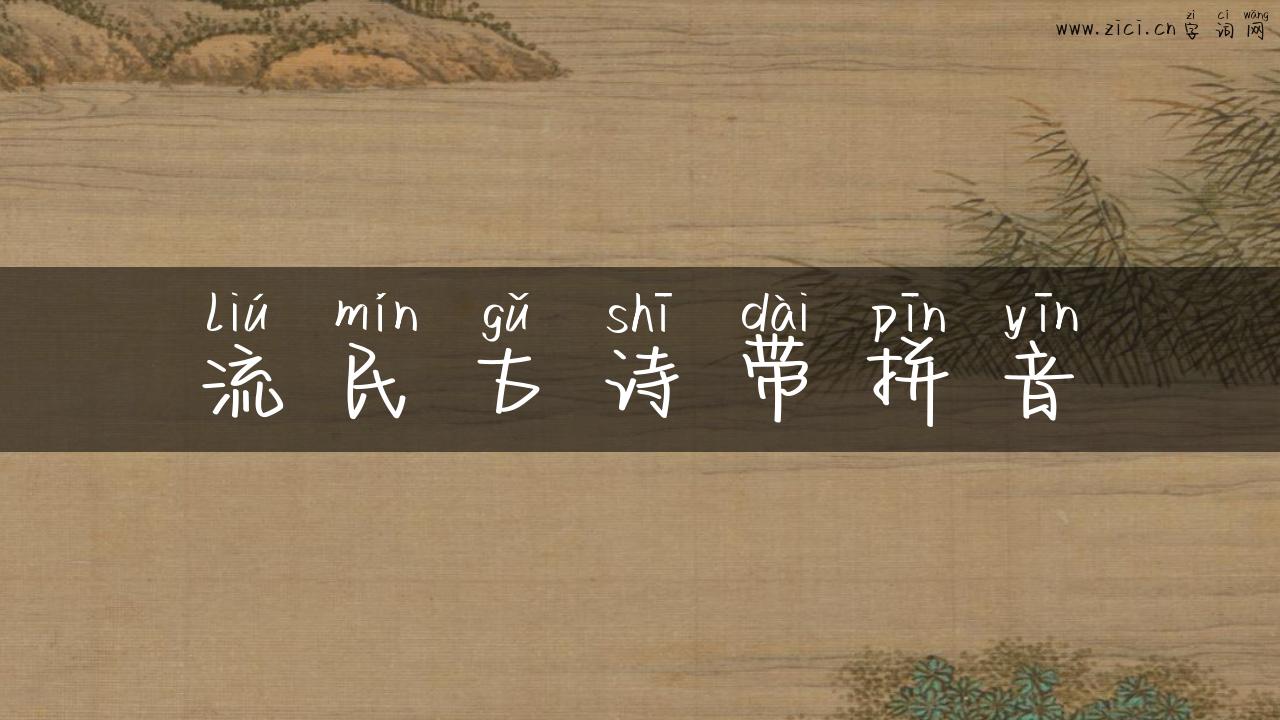 zì cí wǎng
www.zici.cn 字词网
liú mín gǔ shī dài pīn yīn
流民古诗带拼音